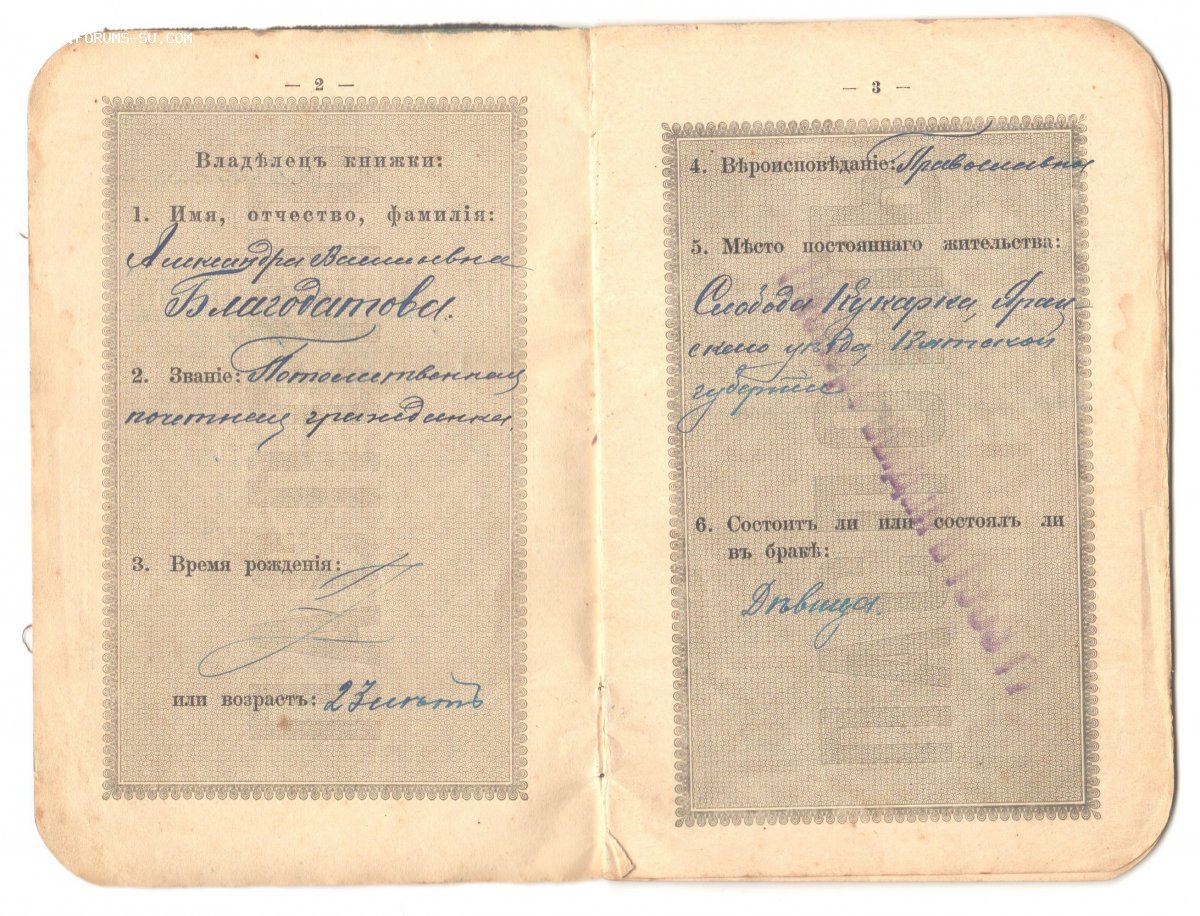 FORUMS-SU.COM
— 2 —
Владѣлецъ книжки:
1. Имя, отчество, фамилія:
Александра Васильевна
Благодатова.
2. Званіе: Потомственная
почетная гражданка.
3. Время рожденія:
или возрастъ: 23 лѣтъ
— 3 —
4. Вѣроисповѣданіе: Православная
5. Мѣсто постояннаго жительства:
Слобода Кукарка, Яран-
скаго уѣзда, Вятской
губерніи.
6. Состоитъ ли или состоялъ ли
въ бракѣ:
Дѣвица.